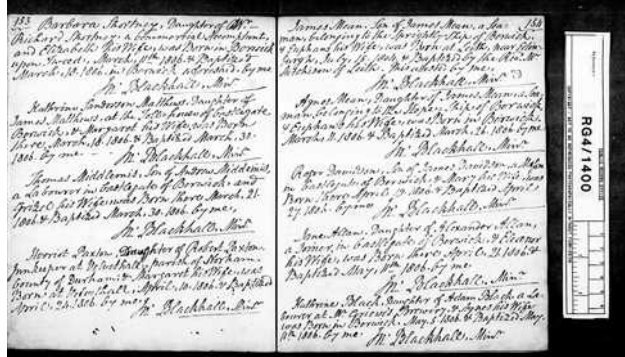 153
Barbara Shortney, Daughter of Mr.
Richard Shortney, a Commercial Accomptant,
and Elizabeth his Wife, was Born in Berwick
upon Tweed, March, 11th 1806. & Baptized
March, 18. 1806. in Berwick aforesaid, by me
Jn.o Blackhall. Minr
Katherine Sanderson Matthews, Daughter of
James Matthews, at the Toll-house of Castlegate
Berwick, & Margaret his Wife, was Born
there March, 18. 1806. & Baptized March, 30.
1806. by me
Jn.o Blackhall. Minr
Thomas Middlemis, Son of Andrew Middlemis,
a Labourer in Castlegate of Berwick, and
Grizel his Wife, was Born there March, 21.
1806. & Baptized March, 30. 1806. by me,
Jn.o Blackhall. Minr
Harriot Paxton, Daughter of Robert Paxton
Innkeeper at parish of Norham
County of Durham & Margaret his Wife, was
Born at April, 10. 1806. & Baptized
April, 24. 1806. by me
Jn.o Blackhall. Minr
154
James Mean, Son of James Mean, a Sea-
man, belonging to the Sprightly Ship of Berwick,
& Euphans his Wife, was Born at Leith, near Edin-
burgh, July, 15. & Baptized by the Revd. Mr.
Aitchison of Leith. This attested by me
Jn.o Blackhall. Minr
Agnes Mean, Daughter of James Mean, a Sea-
man, belonging to the Ship of Berwick
& Euphans his Wife, was Born in Berwick,
March, 11. 1806. & Baptized March, 26. 1806. by me
Jn.o Blackhall. Minr
Roger Davidson, Son of James Davidson, a
in Castlegate of Berwick, & Mary his Wife, was
Born there April, 1806. & Baptized April,
27. 1806. by me
Jn.o Blackhall. Minr
Jane Allan, Daughter of Alexander Allan,
a Joiner, in Castlegate of Berwick, & Eleanor
his Wife, was Born there April, 23. 1806. &
Baptized May, 11th 1806. by me
Jn.o Blackhall. Minr
Katherine Black, Daughter of Adam Black, a La-
bourer at Mr. Grieve's Brewery, & Agnes his Wife
was Born in Berwick, May, 5. 1806. & Baptized May,
11th 1806. by me Jn.o Blackhall. Minr
RG4/1400